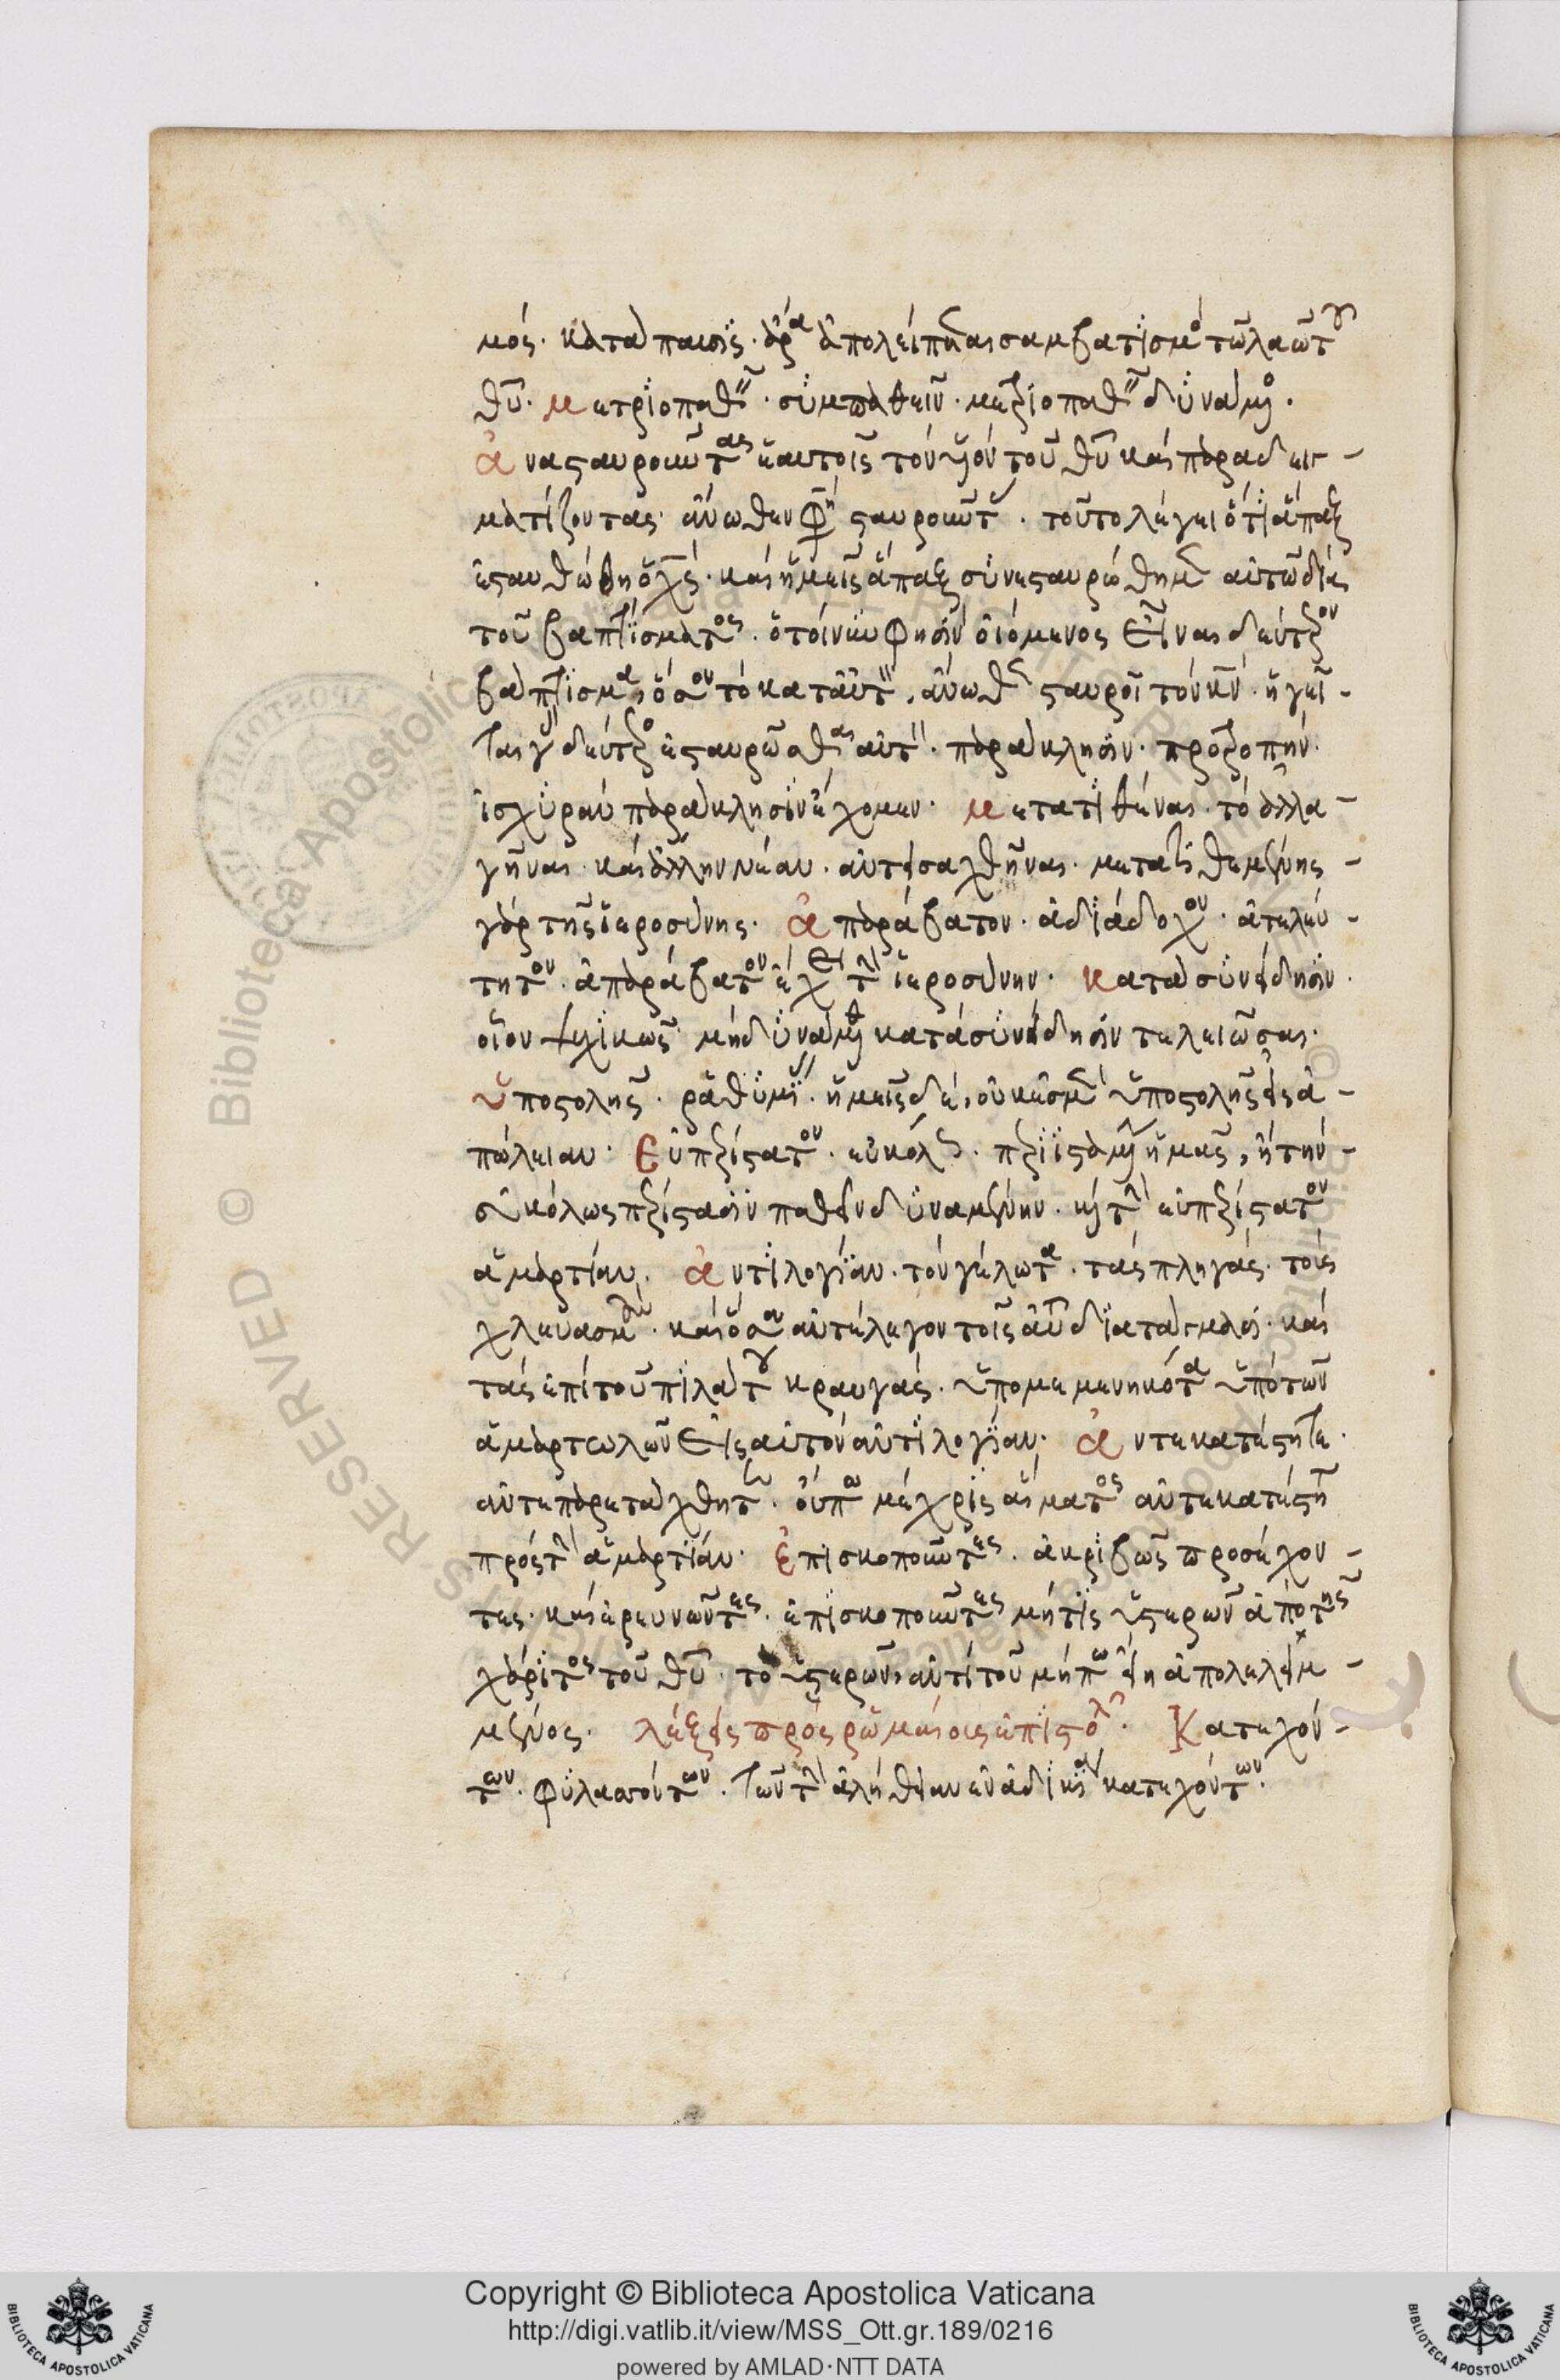 μός· κατάπαυσις· ἄρα ἀπολείπεται σαμβατισμὸς τῶ λαῶ τοῦ
θῦ· μετριοπαθεῖν· συμπαθεῖν· μετριοπαθεῖν δυνάμενος·
ἀναςαυροῦντας ἑαυτοῖς τὸν υἱὸν τοῦ θῦ καὶ παραδειγ-
ματίζοντας· ἄνωθεν φησὶ ςαυροῦντες· τοῦτο λέγει ὅτι ἅπαξ
ἐςαυθώθη ὁ χς· καὶ ἡμεῖς ἅπαξ συνεςαυρώθημεν αὐτῶ διὰ
τοῦ βαπτίσματος· ὁ τοίνυν φησὶν οἰόμενος εἶναι δεύτερον
βάπτισμα, ὅσον τὸ κατ' αὐτὸν, ἄνωθεν ςαυροῖ τὸν κν· ἡγεῖ-
ται γὰρ δεύτερον ἐςαυρῶσθαι αὐτόν· παράκλησιν· προτροπήν·
ἰσχυρὰν παράκλησιν ἔχομεν· μετατιθέναι· τὸ ἀλλα-
γῆναι· καὶ ἄλλην νέαν· ἀντεισαχθῆναι· μετατιθεμένης
γὰρ τῆς ἱεροσύνης· ἀπαράβατον· ἀδιάδοχον· ἀτελεύ-
τητον· ἀπαράβατον ἔχει τὴν ἱεροσύνην· κατὰ συνείδησιν·
οἷον ψυχικῶς· μὴ δυνάμεναι κατὰ συνείδησιν τελειῶσαι·
ὑποςολῆς· ῥαθυμίας· ἡμεῖς δὲ, οὐκ ἐσμὲν ὑποςολῆς εἰς ἀ-
πώλειαν· Εὐπερίςατον· εὐκόλως· περιιςάμενον ἡμᾶς, ἢ τὴν
εὐκόλως περίςασιν παθεῖν δυναμένην· καὶ τὴν εὐπερίςατον
ἁμαρτίαν· ἀντιλογίαν· τὸν γέλωτα· τὰς πληγάς· τοὺς
χλευασμούς· καὶ ὅσα ἀντέλεγον τοῖς αὐτοῦ διατάγμασι· καὶ
τὰς ἐπὶ τοῦ πιλάτου κραυγάς· ὑπομεμενηκότα ὑπὸ τῶν
ἁμαρτωλῶν εἰς αὐτὸν ἀντιλογίαν· ἀντεκατέςητε·
ἀντεπαρετάχθητε· οὔπω μέχρις αἵματος ἀντεκατέςητε
πρὸς τὴν ἁμαρτίαν· ἐπισκοποῦντες· ἀκριβῶς προσέχον-
τες· καὶ ἐρευνῶντες· ἐπισκοποῦντες μή τις ὑςερῶν ἀπὸ τῆς
χάριτος τοῦ θῦ· τὸ ὑςερῶν, ἀντὶ τοῦ μήπω εἴη ἀπολελειμ-
μένος· λέξεις πρὸς ῥωμαίοις ἐπιςολ· Κατεχόν-
των· φυλασσόντων· τῶν τὴν ἀλήθειαν ἐν ἀδικία κατεχόντων·
Copyright © Biblioteca Apostolica Vaticana
http://digi.vatlib.it/view/MSS_Ott.gr.189/0216
powered by AMLAD·NTT DATA